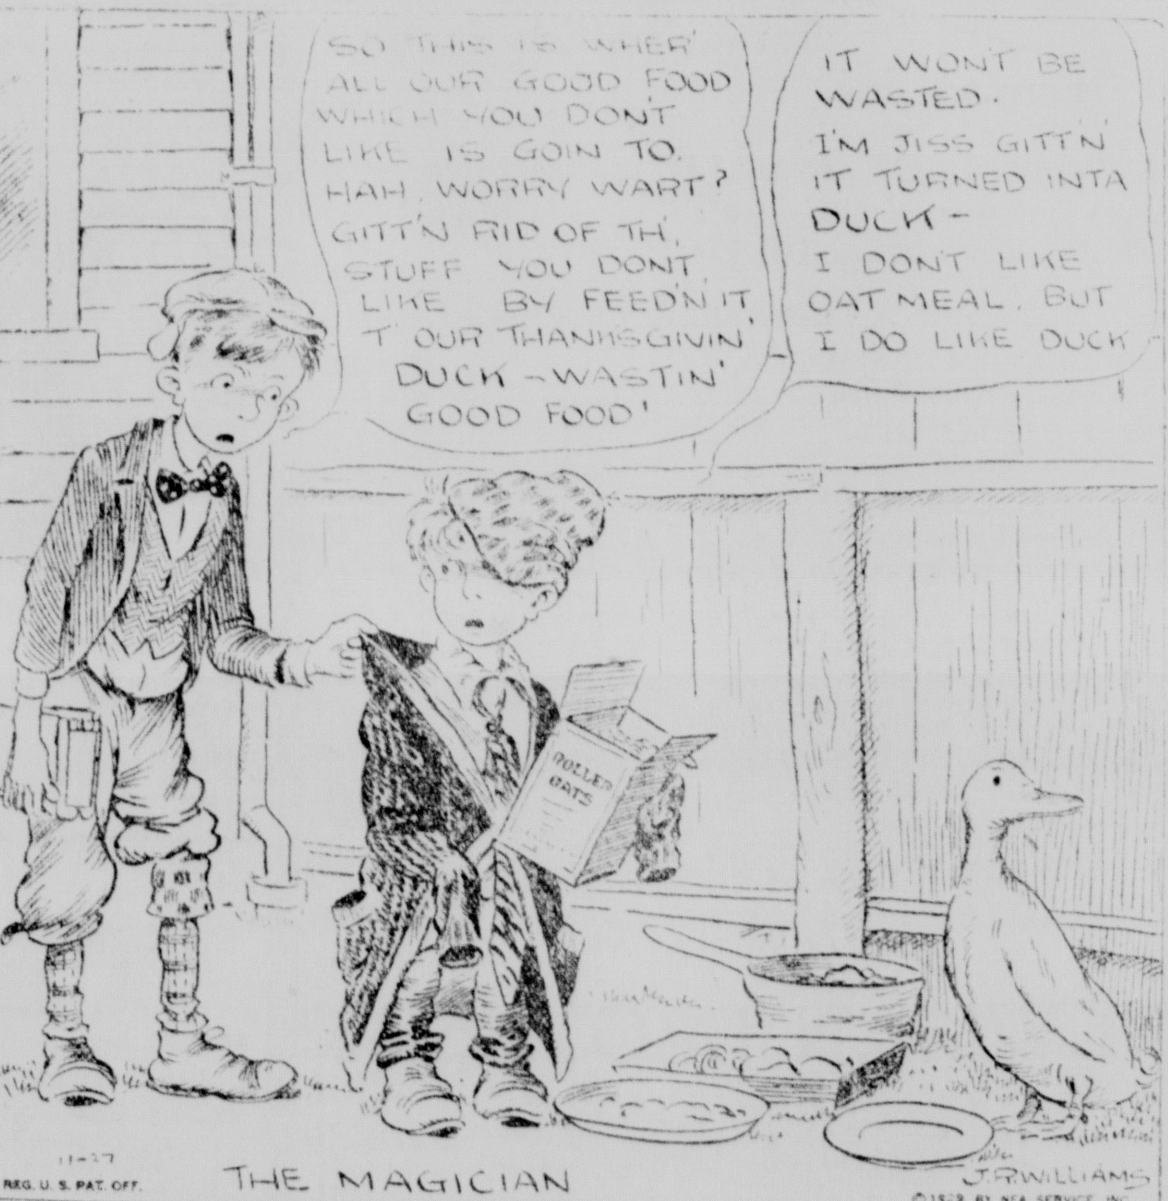 SO THIS IS WHER'
ALL OUR GOOD FOOD
WHICH YOU DON'T
LIKE IS GOIN TO.
HAH, WORRY WART?
GITT'N RID OF TH'
STUFF YOU DONT
LIKE BY FEED'N IT
T' OUR THANKSGIVIN'
DUCK - WASTIN'
GOOD FOOD!
IT WON'T BE
WASTED.
I'M JISS GITT'N
IT TURNED INTA
DUCK -
I DON'T LIKE
OATMEAL, BUT
I DO LIKE DUCK
ROLLED
OATS
11-27
REG. U. S. PAT. OFF.
THE MAGICIAN
J.R.WILLIAMS
BY NEA SERVICE, INC.